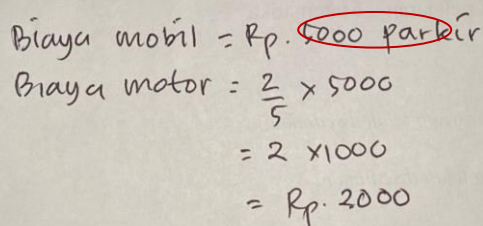 Biaya mobil = Rp. 5000 parkir
Biaya motor = 2/5 × 5000
= 2 × 1000
= Rp. 2000